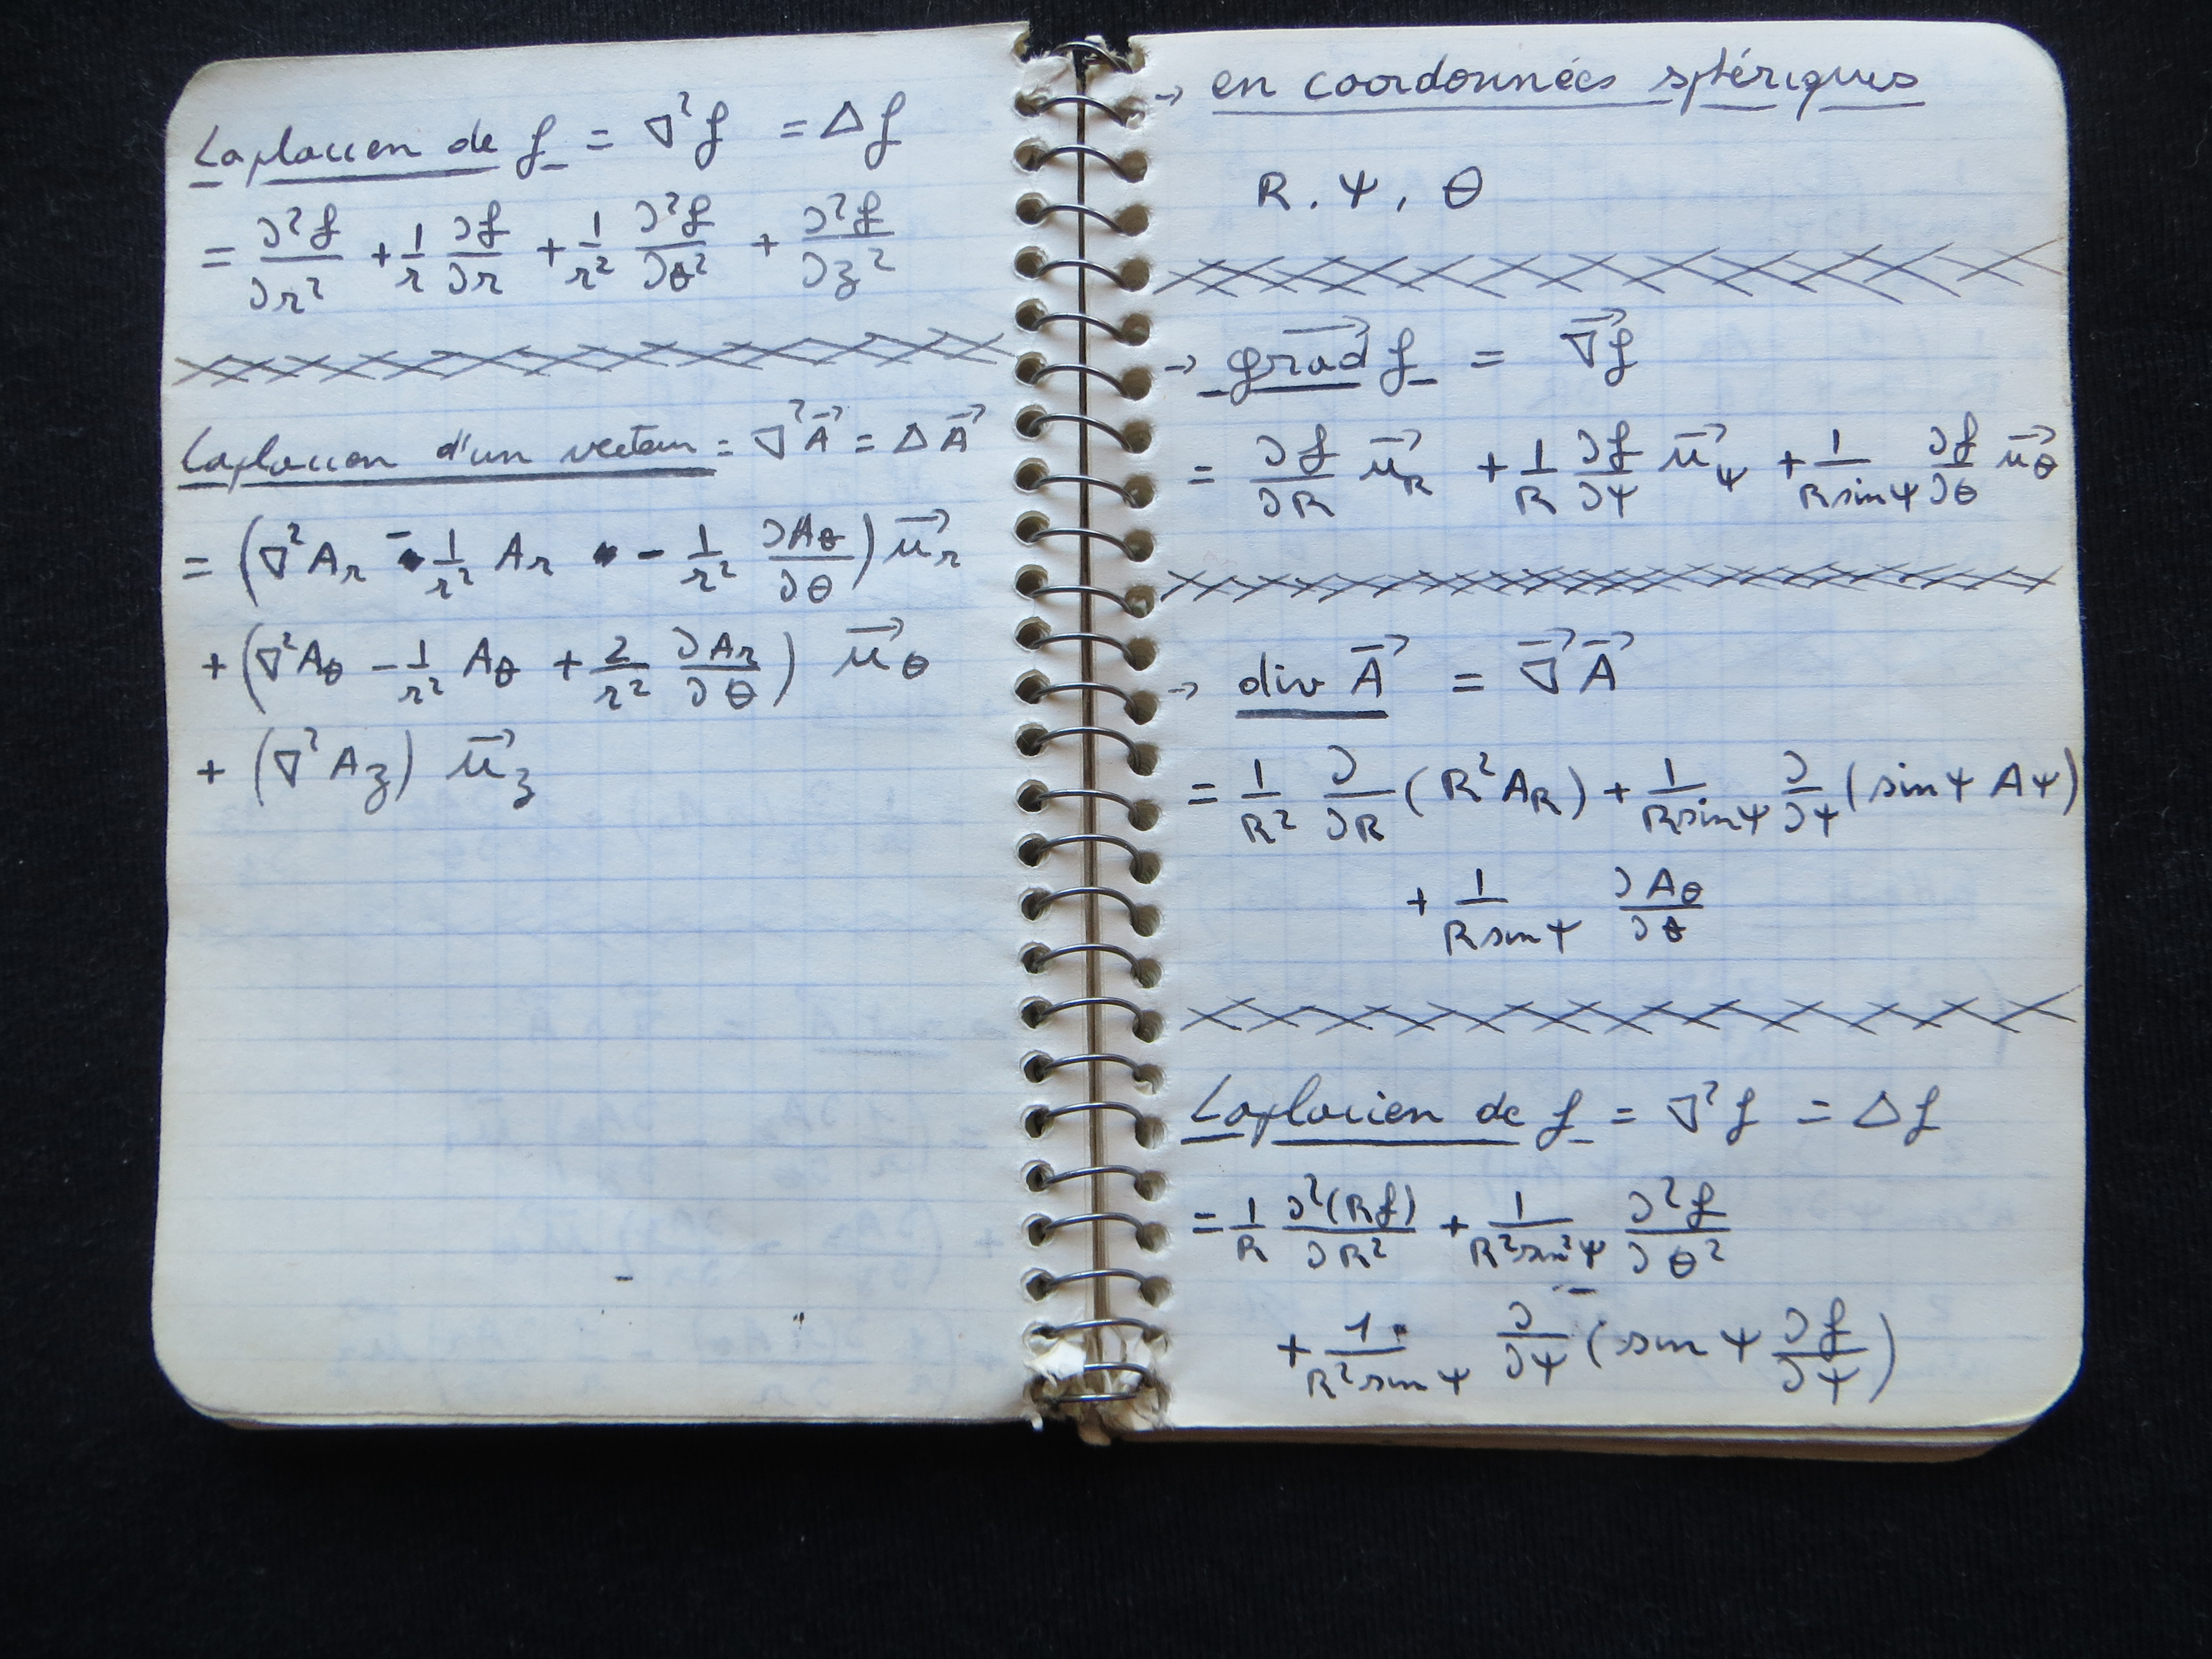 Laplacien de f = ∇²f = Δf
= ∂²f/∂r² + 1/r ∂f/∂r + 1/r² ∂²f/∂θ² + ∂²f/∂z²
Laplacien d'un vecteur = ∇²A⃗ = ΔA⃗
= (∇²Ar - 1/r² Ar - 1/r² ∂Aθ/∂θ) u⃗r
+ (∇²Aθ - 1/r² Aθ + 2/r² ∂Ar/∂θ) u⃗θ
+ (∇²Az) u⃗z
→ en coordonnées sphériques
R, Ψ, θ
→ grad⃗ f = ∇⃗f
= ∂f/∂R u⃗R + 1/R ∂f/∂Ψ u⃗Ψ + 1/(R sinΨ) ∂f/∂θ u⃗θ
→ div A⃗ = ∇⃗A⃗
= 1/R² ∂/∂R (R²AR) + 1/(R sinΨ) ∂/∂Ψ (sinΨ AΨ)
+ 1/(R sinΨ) ∂Aθ/∂θ
Laplacien de f = ∇²f = Δf
= 1/R ∂²(Rf)/∂R² + 1/(R² sin²Ψ) ∂²f/∂θ²
+ 1/(R² sinΨ) ∂/∂Ψ (sinΨ ∂f/∂Ψ)